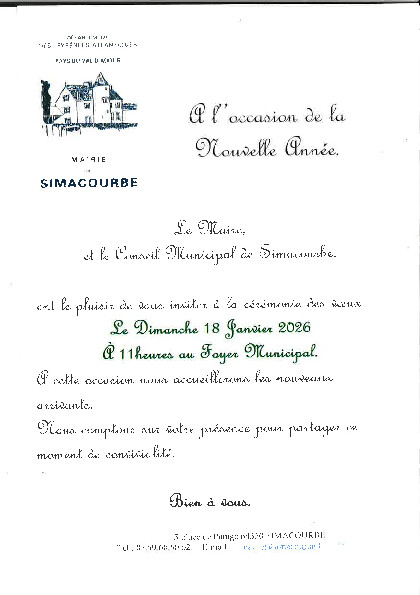 DÉPARTEMENT
DES PYRÉNÉES-ATLANTIQUES
MAIRIE
SIMACOURBE
A l'occasion de la
Nouvelle Année.
Le Maire,
et le Conseil Municipal de Simacourbe.
ont le plaisir de vous inviter à la cérémonie des vœux
Le Dimanche 18 Janvier 2026
À 11heures au Foyer Municipal.
A cette occasion nous accueillerons les nouveaux
arrivants.
Nous comptons sur votre présence pour partager ce
moment de convivialité.
Bien à vous.
place de SIMACOURBE